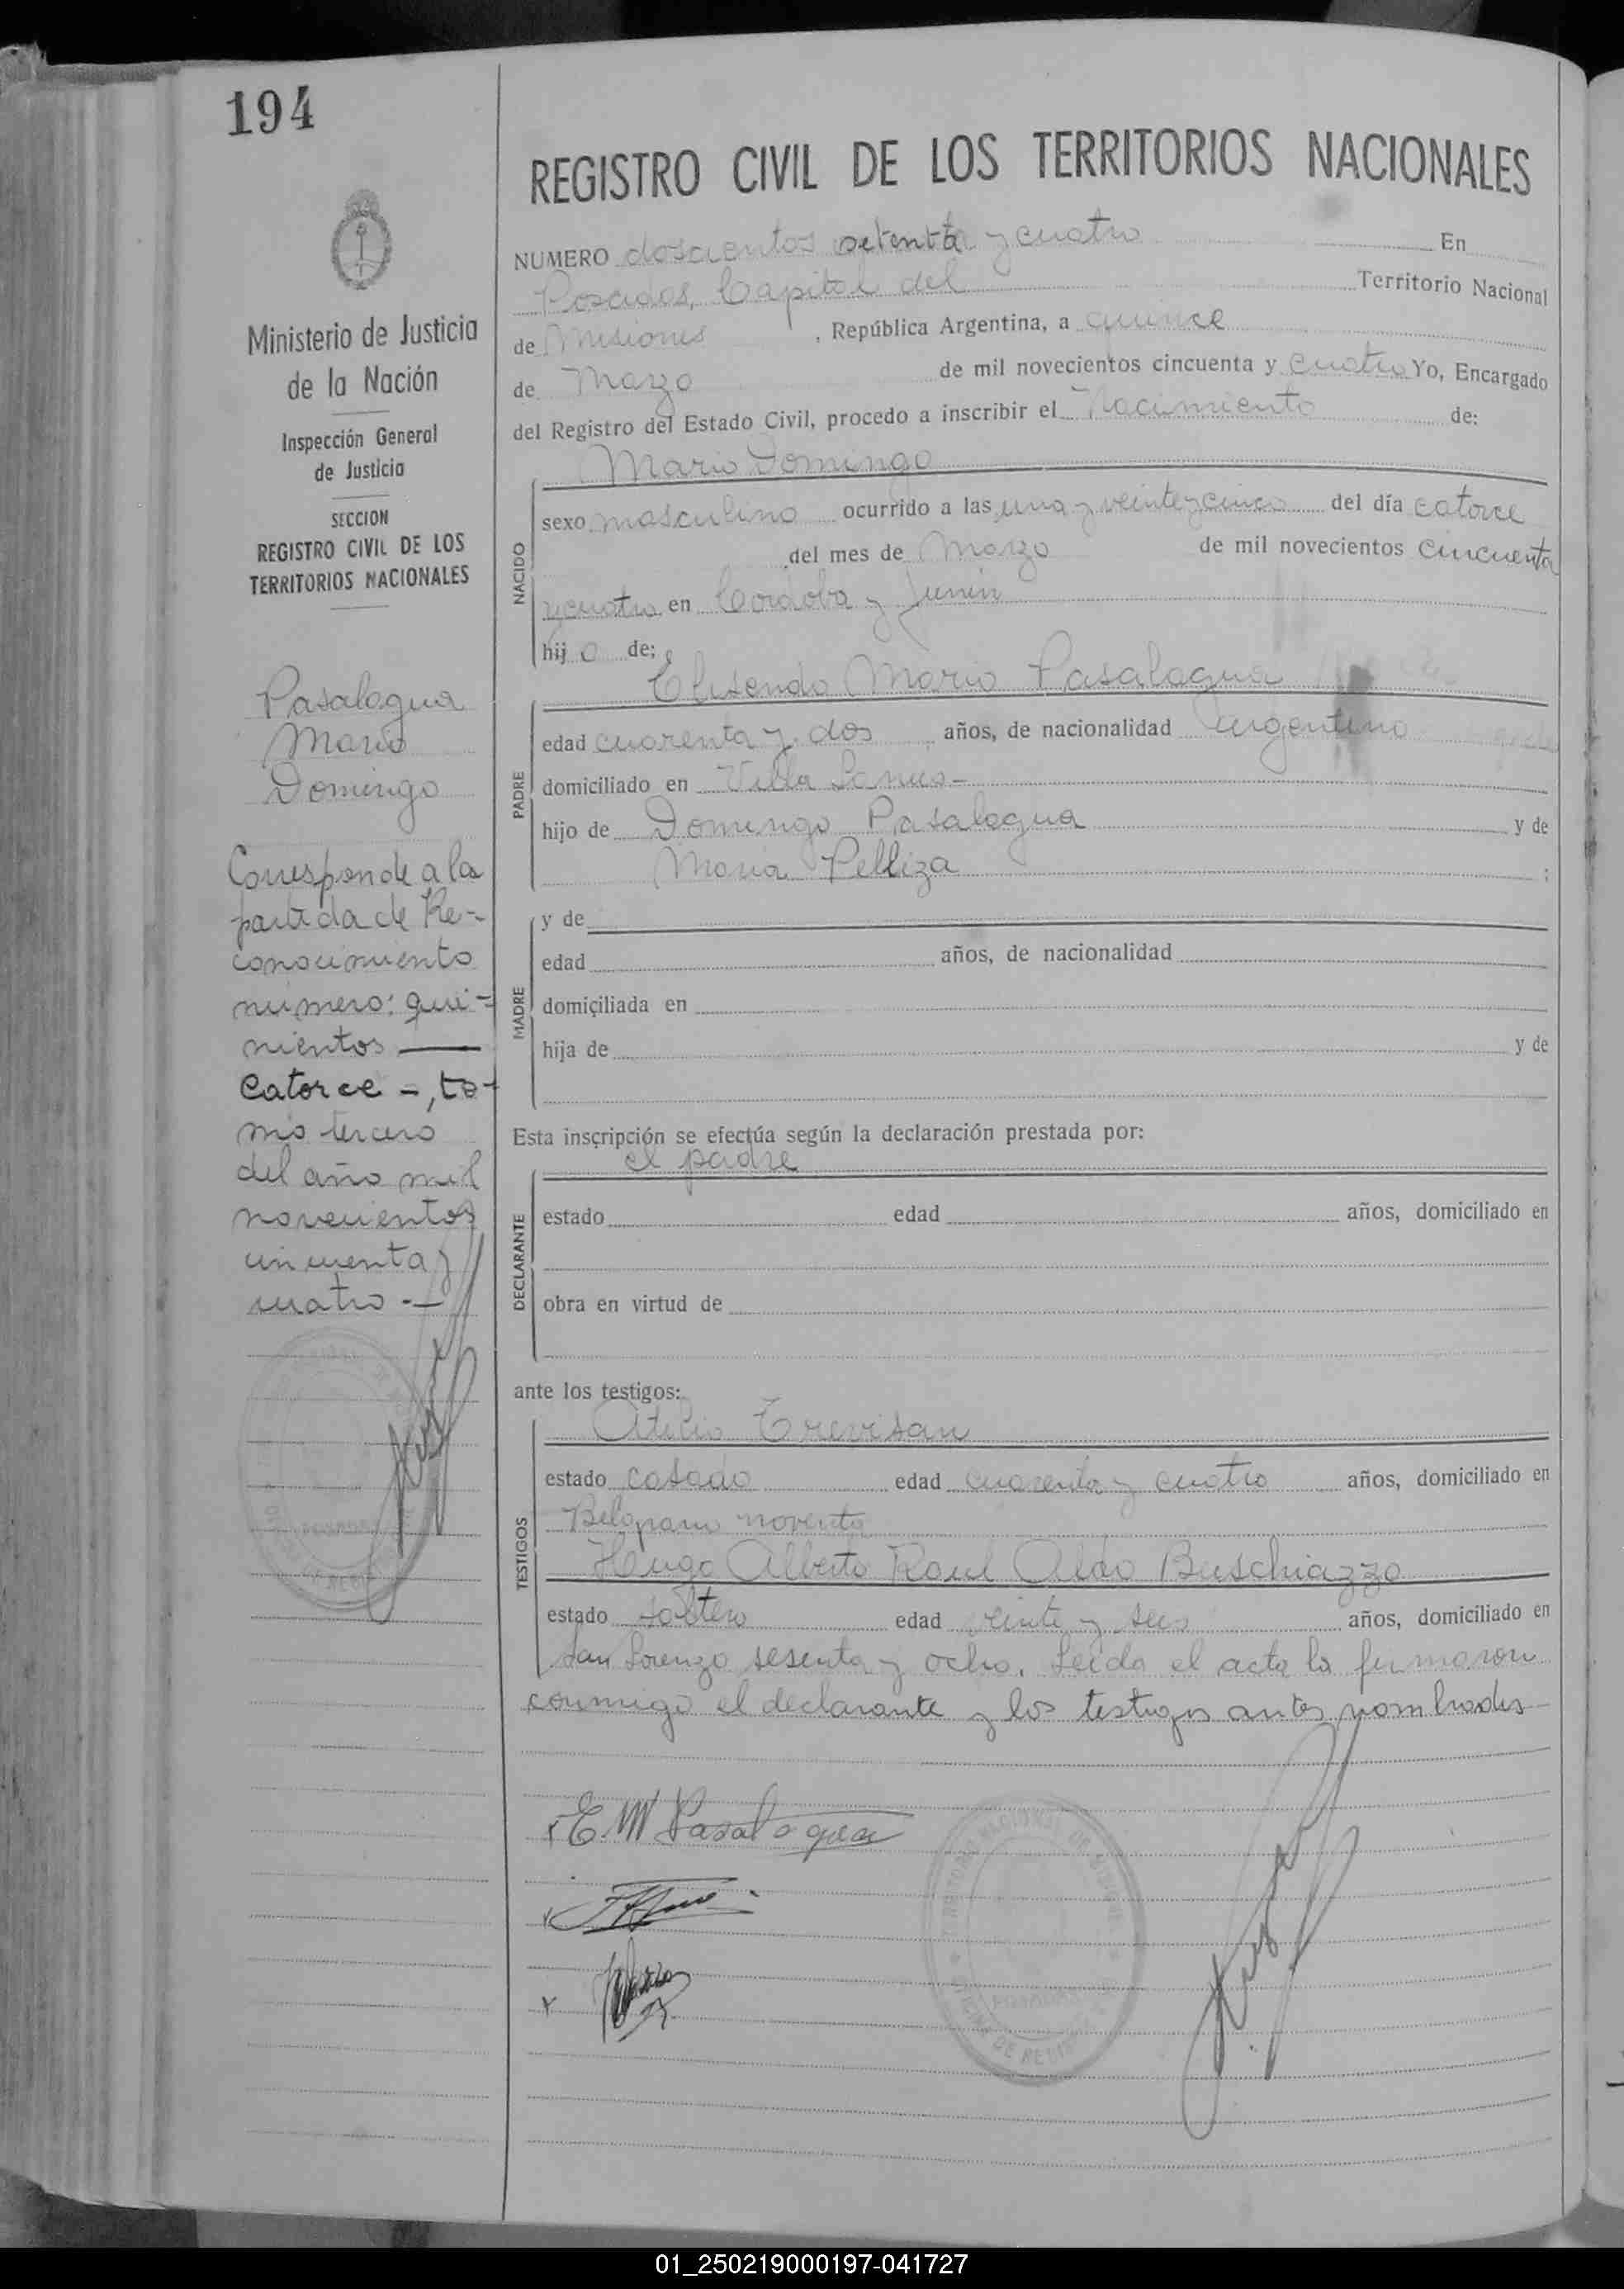 194
REGISTRO CIVIL DE LOS TERRITORIOS NACIONALES
NUMERO doscientos setenta y cuatro En
Posadas, Capital del Territorio Nacional
de Misiones, República Argentina, a quince
de Marzo de mil novecientos cincuenta y cuatro Yo, Encargado
del Registro del Estado Civil, procedo a inscribir el Nacimiento de:
Mario Domingo
NACIDO
sexo masculino ocurrido a las una y veinte y cinco del día catorce
del mes de Marzo de mil novecientos cincuenta
y cuatro en Cordoba y Junin
hij o de:
Elisendo Mario Pasalagua
PADRE
edad cuarenta y dos años, de nacionalidad argentino
domiciliado en Villa Lanus-
hijo de Domingo Pasalagua y de
Maria Pelliza ;
MADRE
y de
edad años, de nacionalidad
domiciliada en
hija de y de
Esta inscripción se efectúa según la declaración prestada por:
el padre
DECLARANTE
estado edad años, domiciliado en
obra en virtud de
ante los testigos:
Atilio Trevisan
TESTIGOS
estado casado edad cuarenta y cuatro años, domiciliado en
Belgrano noventa
Hugo Alberto Raul Aldo Buschiazzo
estado soltero edad veinte y seis años, domiciliado en
San Lorenzo sesenta y ocho. Leida el acta la firmaron
conmigo el declarante y los testigos antes nombrados-
E. M Pasalagua
Ministerio de Justicia
de la Nación
Inspección General
de Justicia
SECCION
REGISTRO CIVIL DE LOS
TERRITORIOS NACIONALES
Pasalagua
Mario
Domingo
Corresponde a la
partida de Re-
conocimiento
número: qui-
nientos —
catorce -, to-
mo tercero
del año mil
novecientos
cincuenta y
cuatro.-
POSADAS
01_250219000197-041727